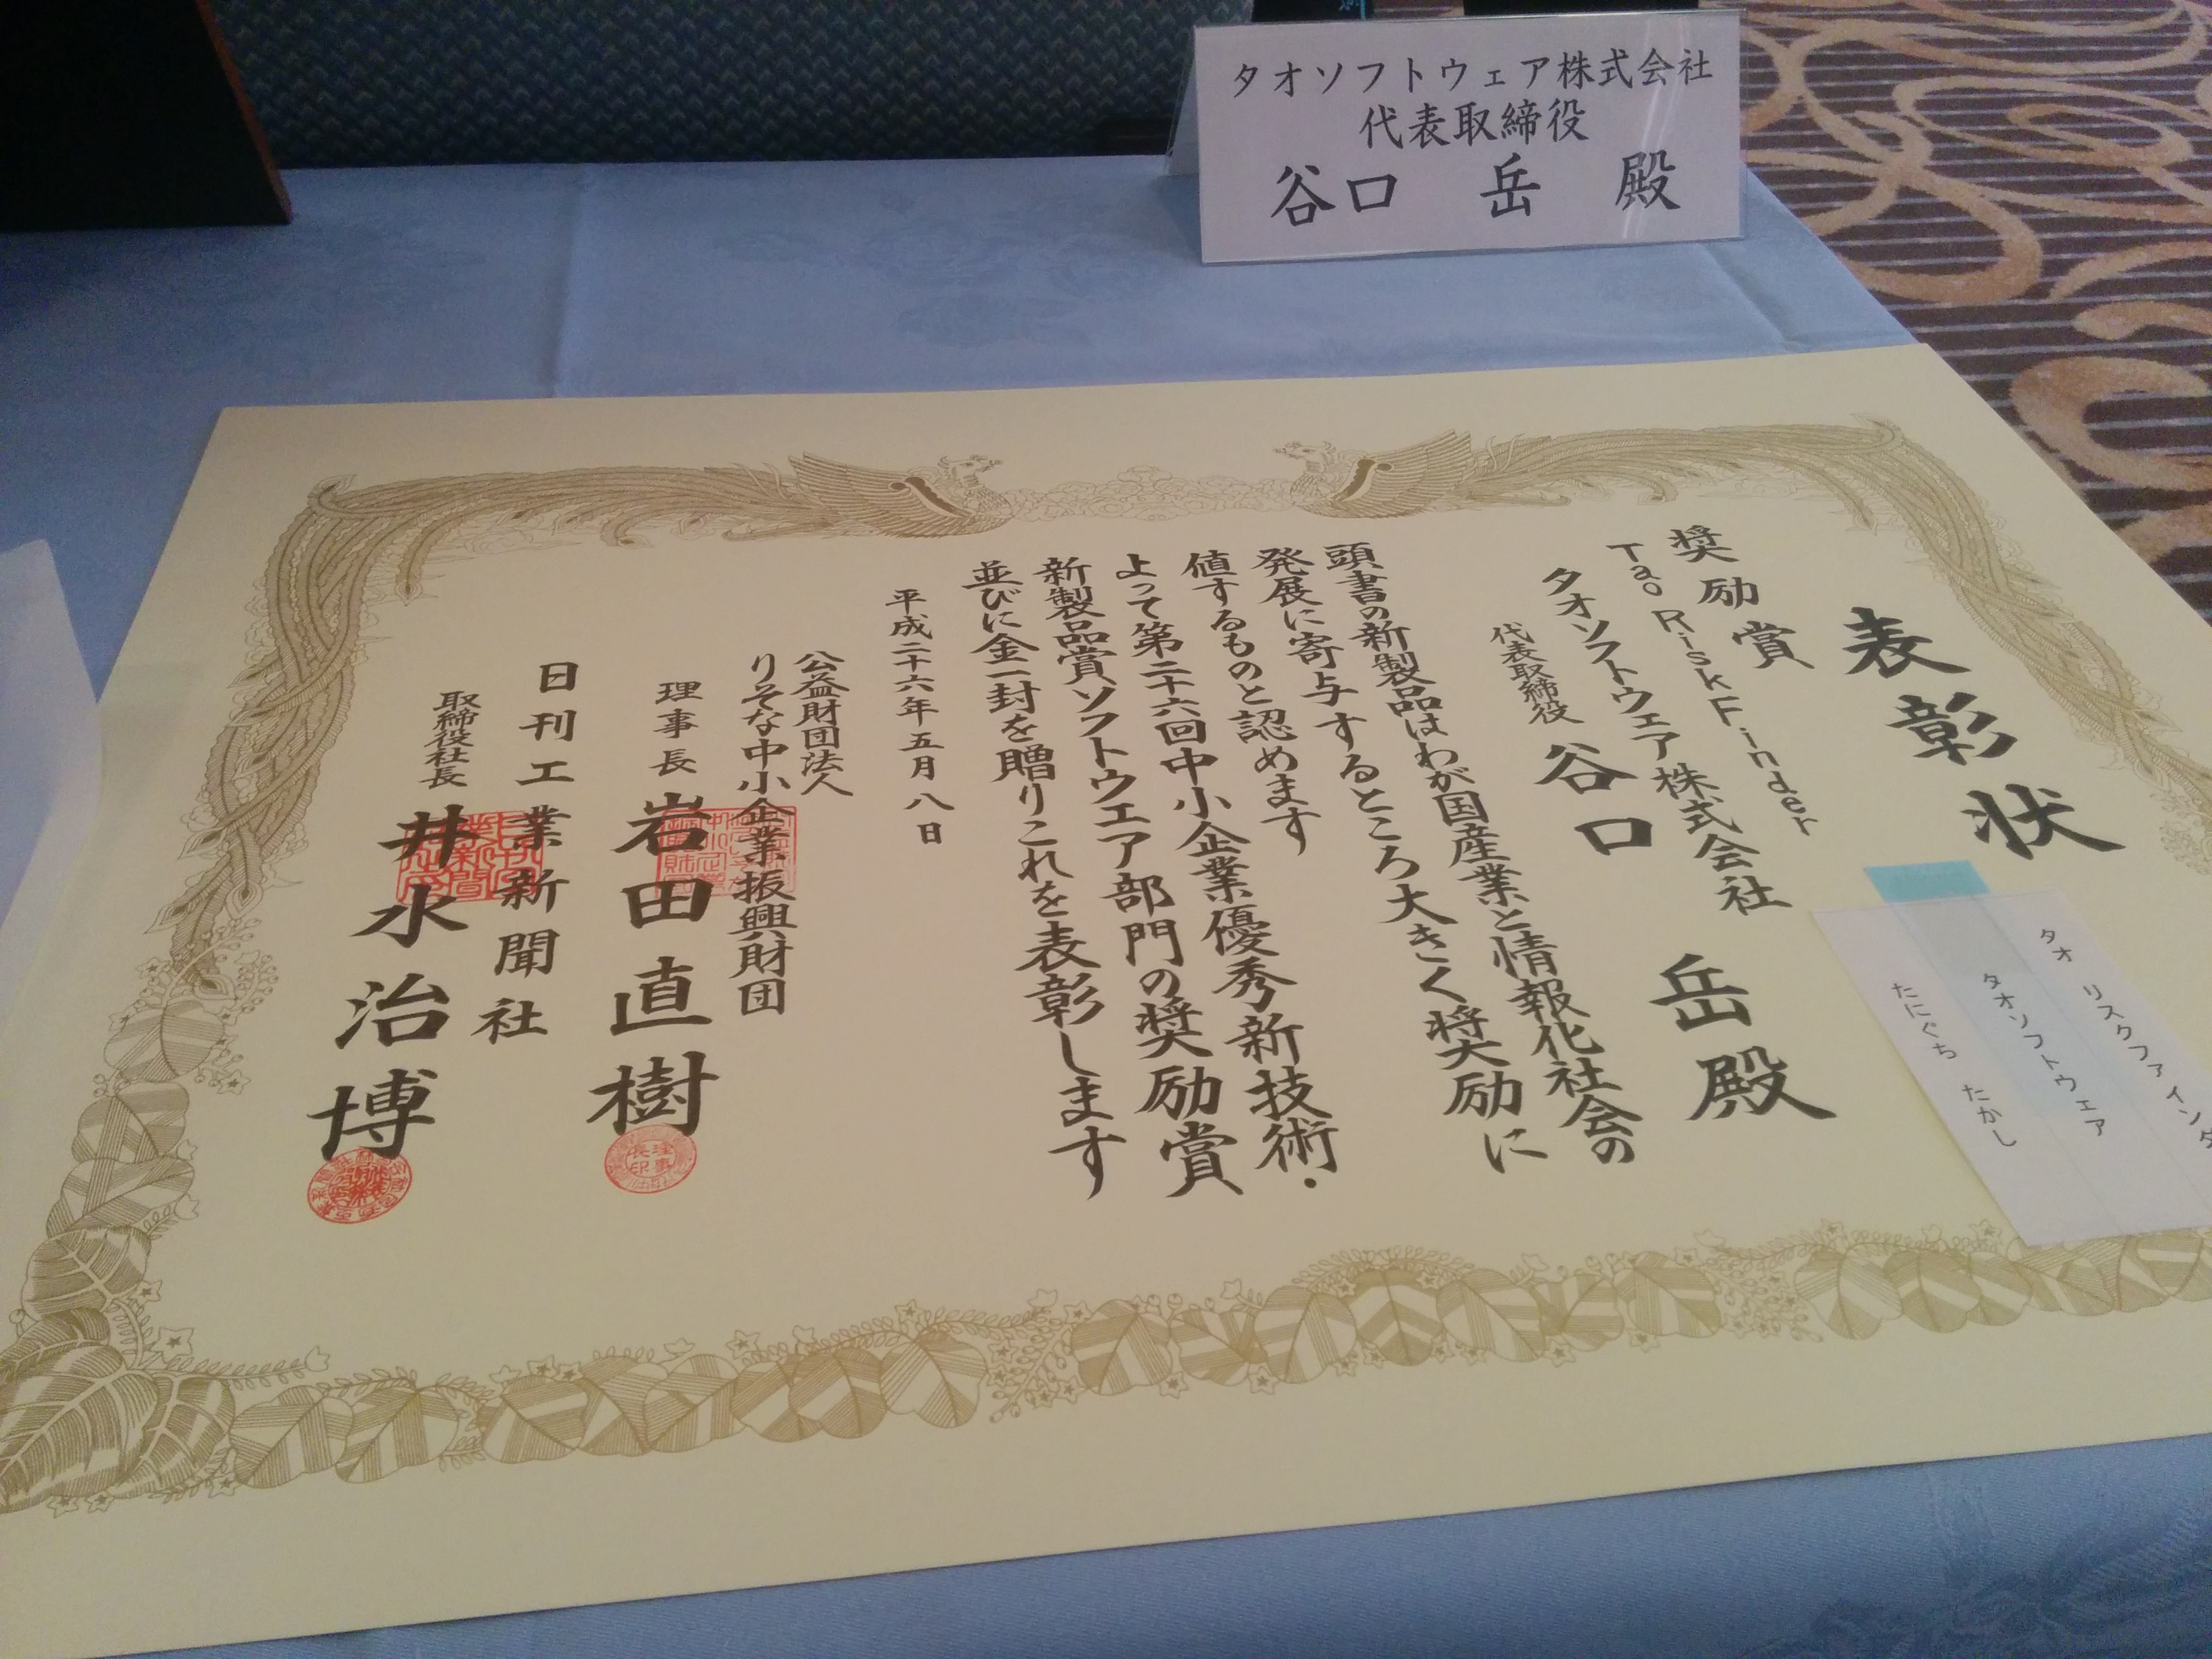 タオソフトウェア株式会社
代表取締役
谷口 岳 殿
表彰状
奨励賞
Tao RiskFinder
タオソフトウェア株式会社
代表取締役 谷口 岳 殿
頭書の新製品はわが国産業と情報化社会の
発展に寄与するところ大きく奨励に
値するものと認めます
よって第二十六回中小企業優秀新技術・
新製品賞ソフトウエア部門の奨励賞
並びに金一封を贈りこれを表彰します
平成二十六年五月八日
公益財団法人
りそな中小企業振興財団
理事長 岩田直樹
日刊工業新聞社
取締役社長 井水治博
タオ リスクファイン
タオソフトウェア
たにぐち たかし